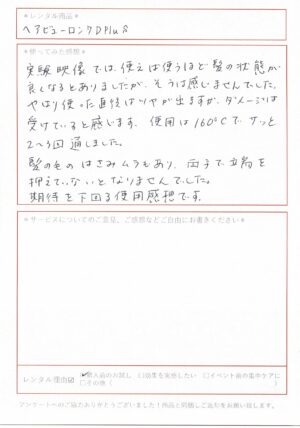 ＊レンタル商品＊
ヘアビューロン7D Plus
＊使ってみた感想＊
実験映像では、使えば使うほど髪の状態が
良くなるとありましたが、そうは感じませんでした。
やはり使った直後はツヤが出ますが、ダメージは
受けていると感じます。使用は160℃で サッと
2～3回通しました。
髪の毛のはさみムラもあり、両手で立約を
抑えていないとなりませんでした。
期待を下回る使用感想です。
＊サービスについてのご意見、ご感想などご自由にお書きください＊
レンタル理由☑
☑購入前のお試し □効果を実感したい □イベント前の集中ケアに
□その他（ ）
アンケートへのご協力ありがとうございました！商品と同梱しご返却をお願い致します。